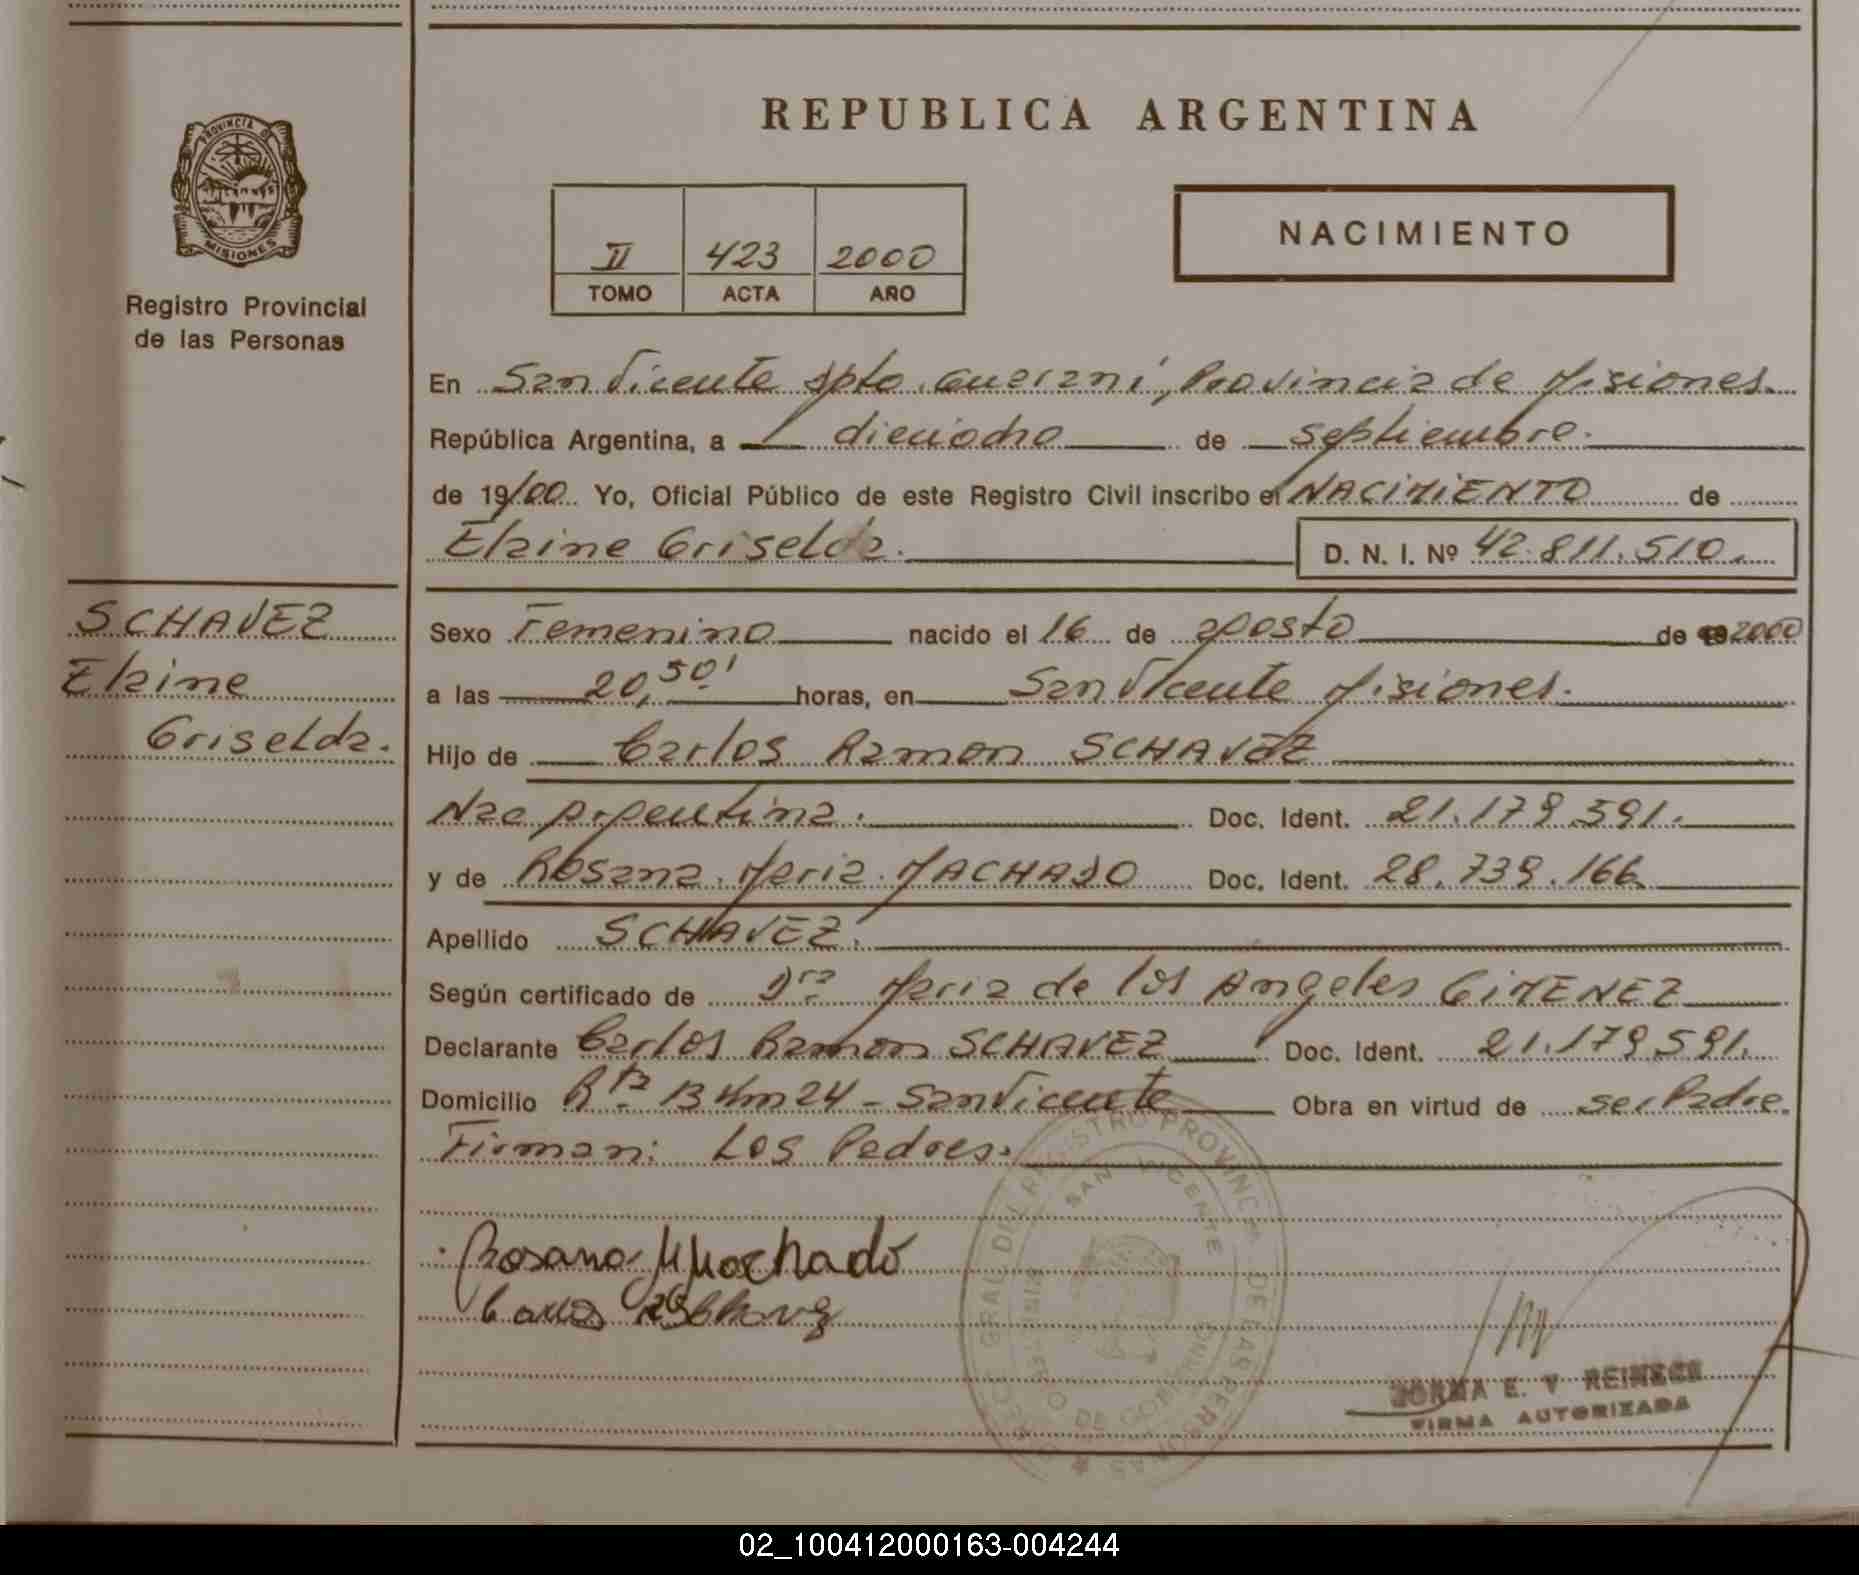 REPUBLICA ARGENTINA
PROVINCIA DE
MISIONES
Registro Provincial
de las Personas
II 423 2000
TOMO ACTA AÑO
NACIMIENTO
En San Vicente Dpto. Guaraní, Provincia de Misiones.
República Argentina, a dieciocho de septiembre.
de 19/00 Yo, Oficial Público de este Registro Civil inscribo el NACIMIENTO de
Elaine Griselda.
D. N. I. Nº 42.811.510.
SCHAVEZ
Elaine
Griselda.
Sexo Femenino nacido el 16 de agosto de 2000
a las 20,50' horas, en San Vicente Misiones.
Hijo de Carlos Ramon SCHAVEZ
Nac Argentina. Doc. Ident. 21.179.591.
y de Rosana Maria MACHADO Doc. Ident. 28.739.166
Apellido SCHAVEZ.
Según certificado de Dra Maria de los Angeles GIMENEZ
Declarante Carlos Ramon SCHAVEZ Doc. Ident. 21.179.591.
Domicilio Rta 13 Km 24 - San Vicente Obra en virtud de ser Padre.
Firman: Los Padres.
Rosana M Machado
SAN VICENTE
NORMA E. V. REINECK
FIRMA AUTORIZADA
02_100412000163-004244